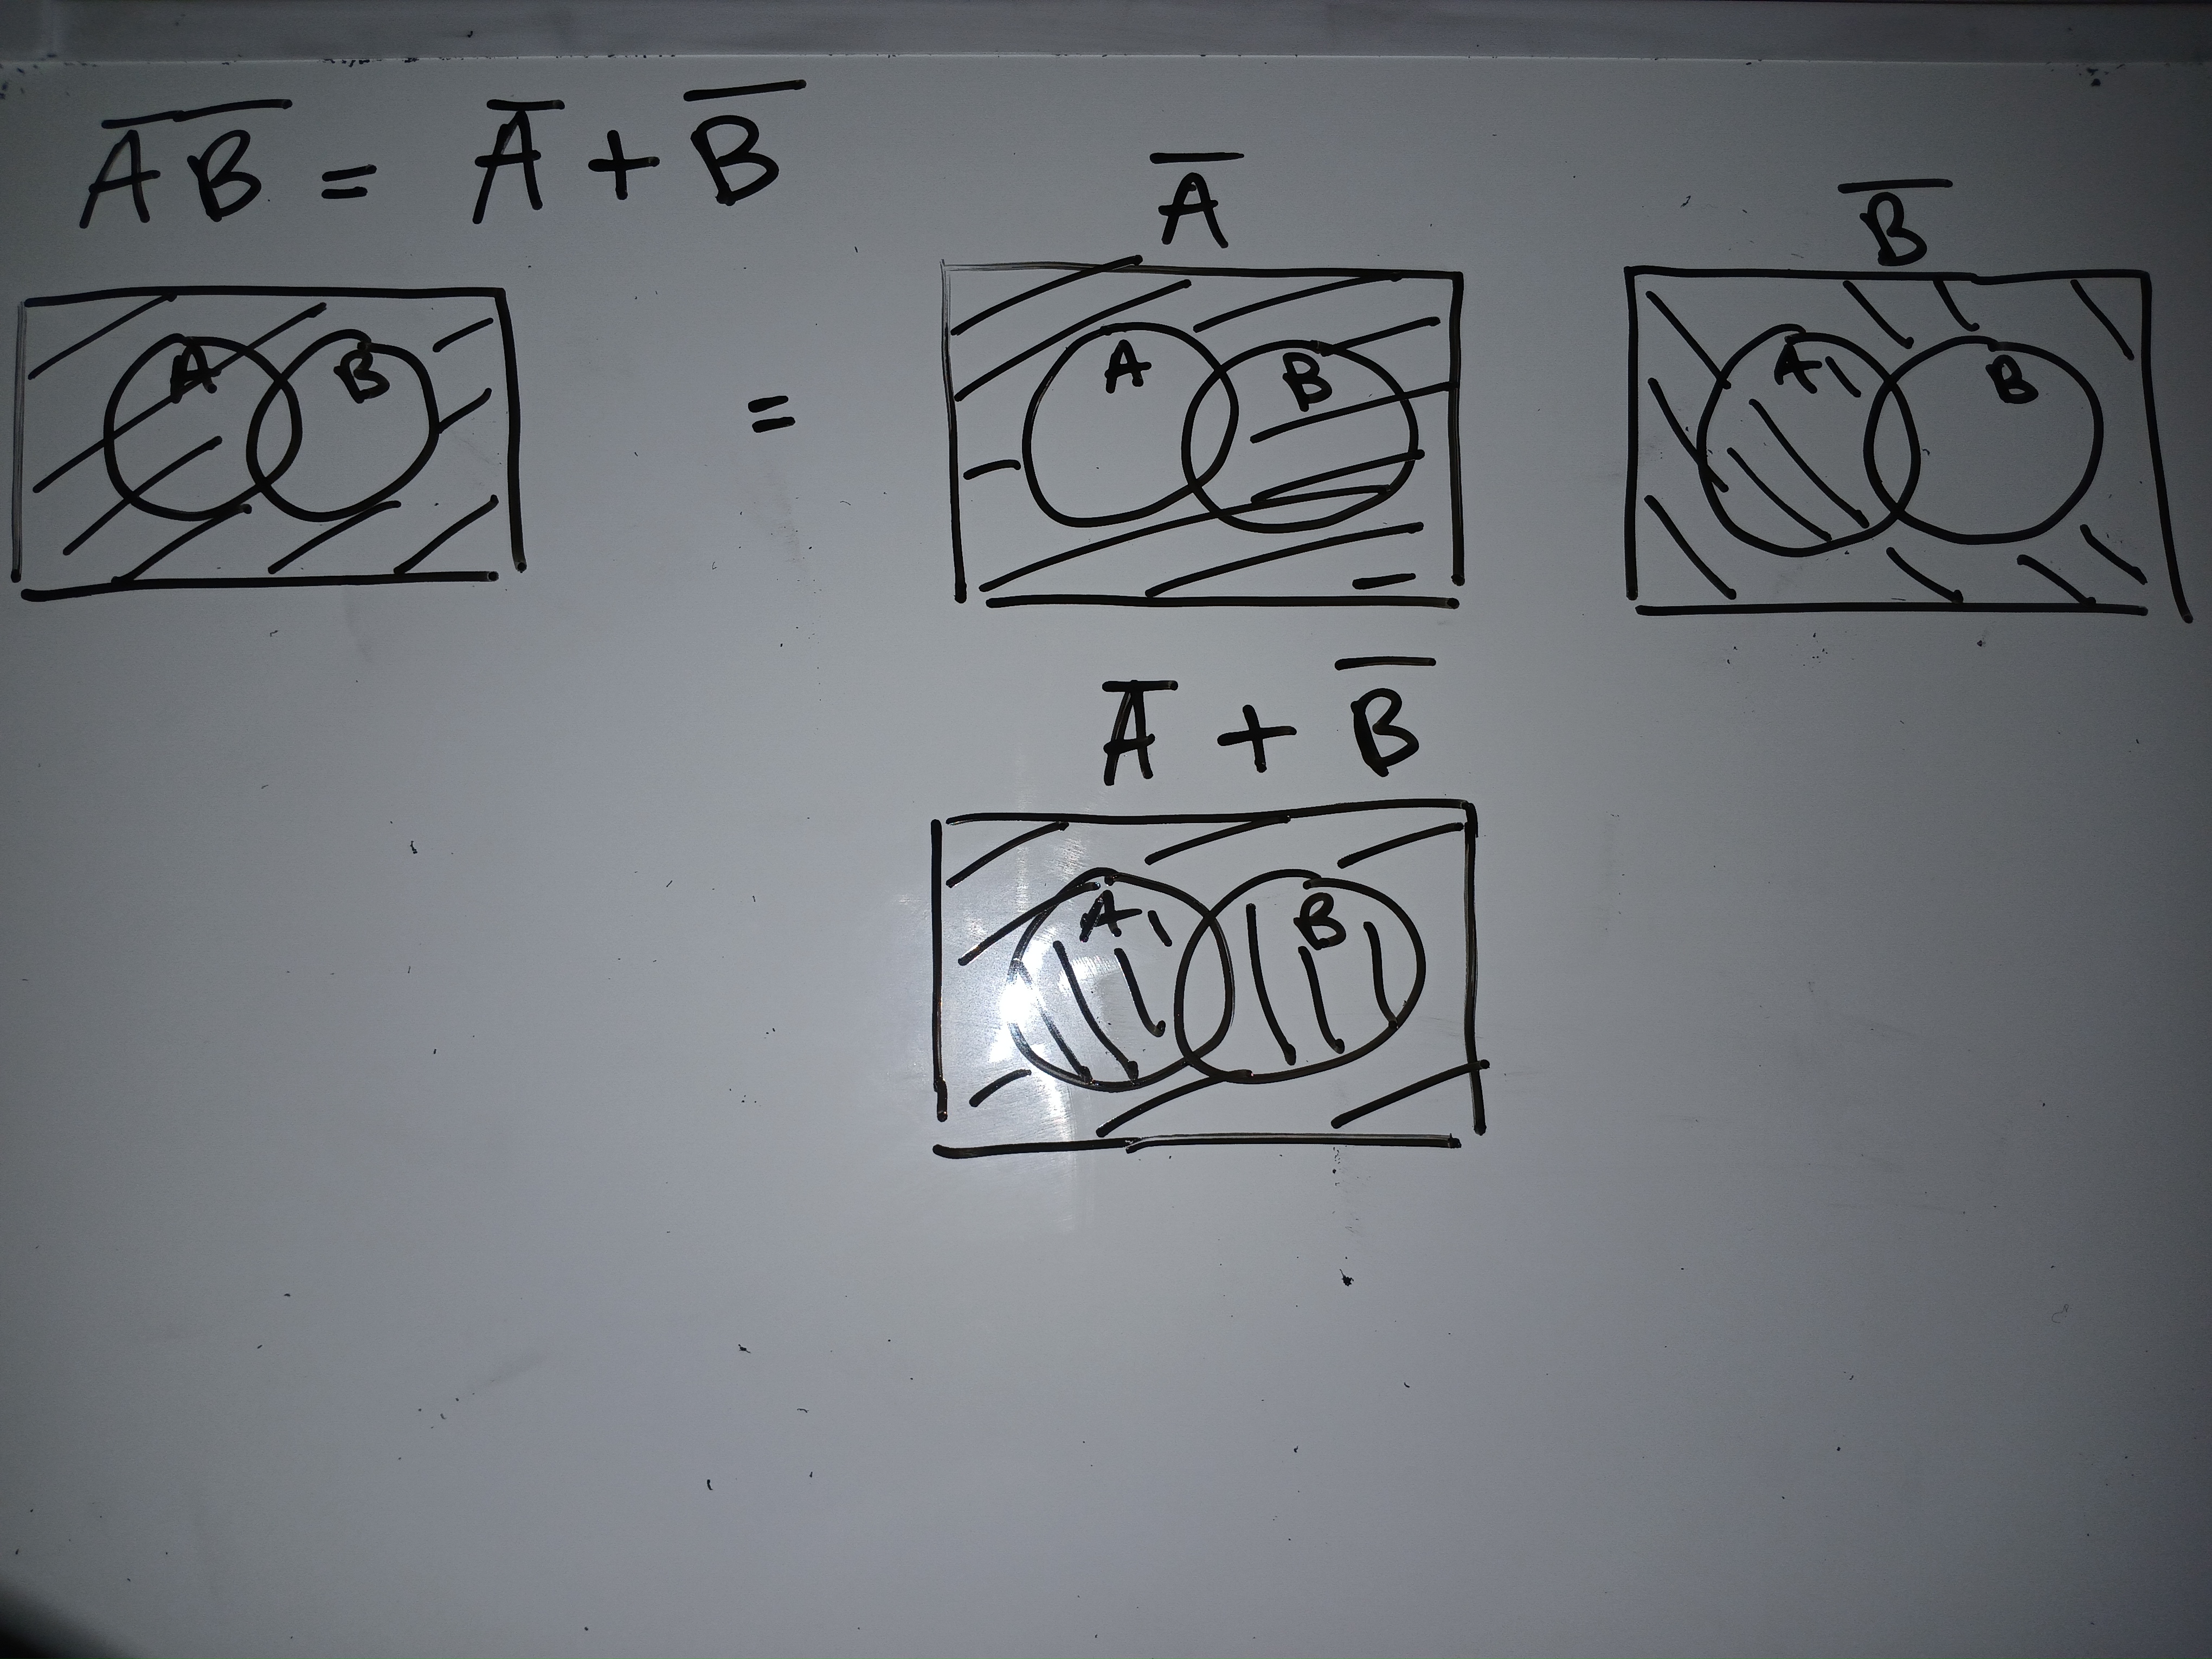 A̅B̅ = A̅ + B̅
A B
=
A̅
A B
B̅
A B
A̅ + B̅
A B